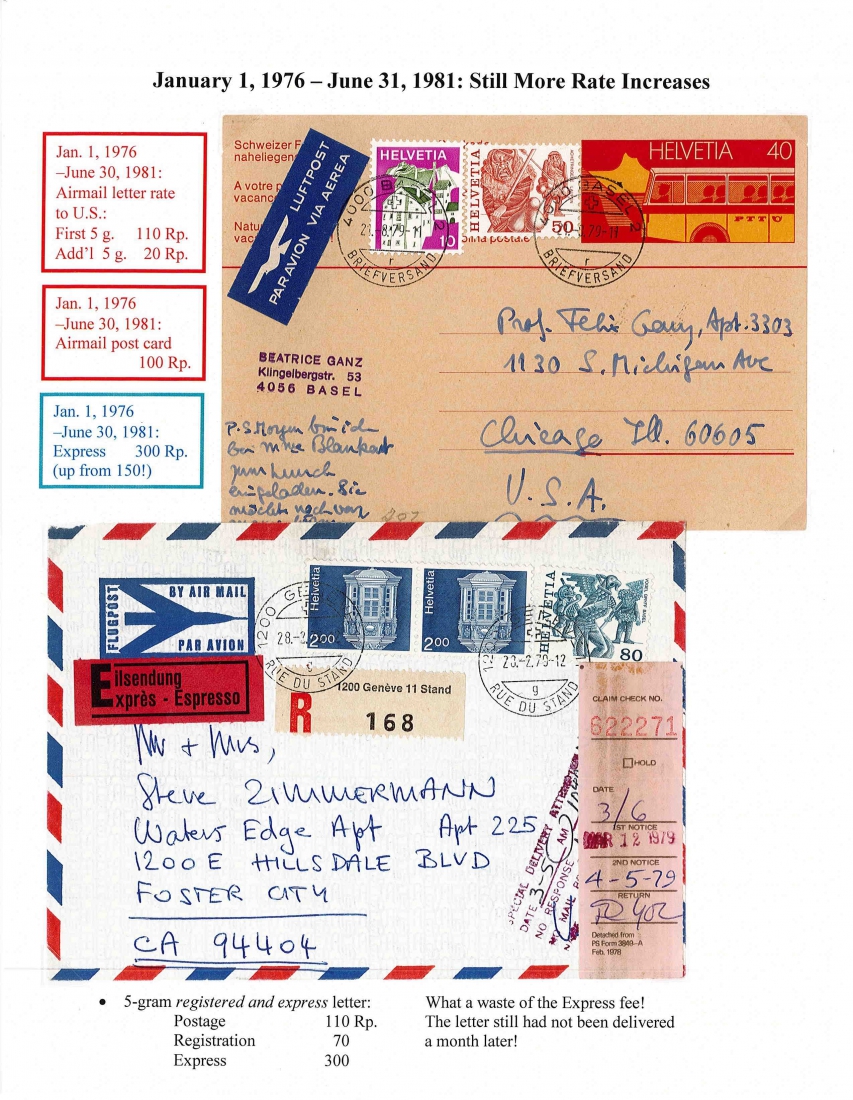 January 1, 1976 – June 31, 1981: Still More Rate Increases
Jan. 1, 1976
–June 30, 1981:
Airmail letter rate
to U.S.:
First 5 g. 110 Rp.
Add'l 5 g. 20 Rp.
Jan. 1, 1976
–June 30, 1981:
Airmail post card
100 Rp.
Jan. 1, 1976
–June 30, 1981:
Express 300 Rp.
(up from 150!)
Schweizer F
naheliegen
A votre p
vacanc
Natu
vac
LUFTPOST
PAR AVION VIA AEREA
HELVETIA
10
HELVETIA
50
HELVETIA 40
PTT
4000 BASEL 2
BRIEFVERSAND
r
BASEL 2
BRIEFVERSAND
r
Prof. Felix Ganz, Apt. 3303
1130 S. Michigan Ave
Chicago Ill. 60605
U.S.A.
BEATRICE GANZ
Klingelbergstr. 53
4056 BASEL
P.S. Morgen bin ich
bei Mme Blankart
zum Lunch
eingeladen. Sie
FLUGPOST
BY AIR MAIL
PAR AVION
Helvetia
200
Helvetia
200
HELVETIA
80
1200 GE
28.-2.
RUE DU STAND
28.-2.79-12
g
RUE DU STAND
Eilsendung
Exprès - Espresso
R
1200 Genève 11 Stand
168
Mr + Mrs,
Steve ZIMMERMANN
Waters Edge Apt Apt 225
1200 E HILLSDALE BLVD
FOSTER CITY
CA 94404
SPECIAL DELIVERY ATTEMPTED
DATE 3-5 AM
NO RESPONSE
MAIL
CLAIM CHECK NO.
622271
HOLD
DATE
3/6
1ST NOTICE
MAR 12 1979
2ND NOTICE
4-5-79
RETURN
Detached from
PS Form 3849-A
Feb. 1978
• 5-gram registered and express letter:
Postage 110 Rp.
Registration 70
Express 300
What a waste of the Express fee!
The letter still had not been delivered
a month later!